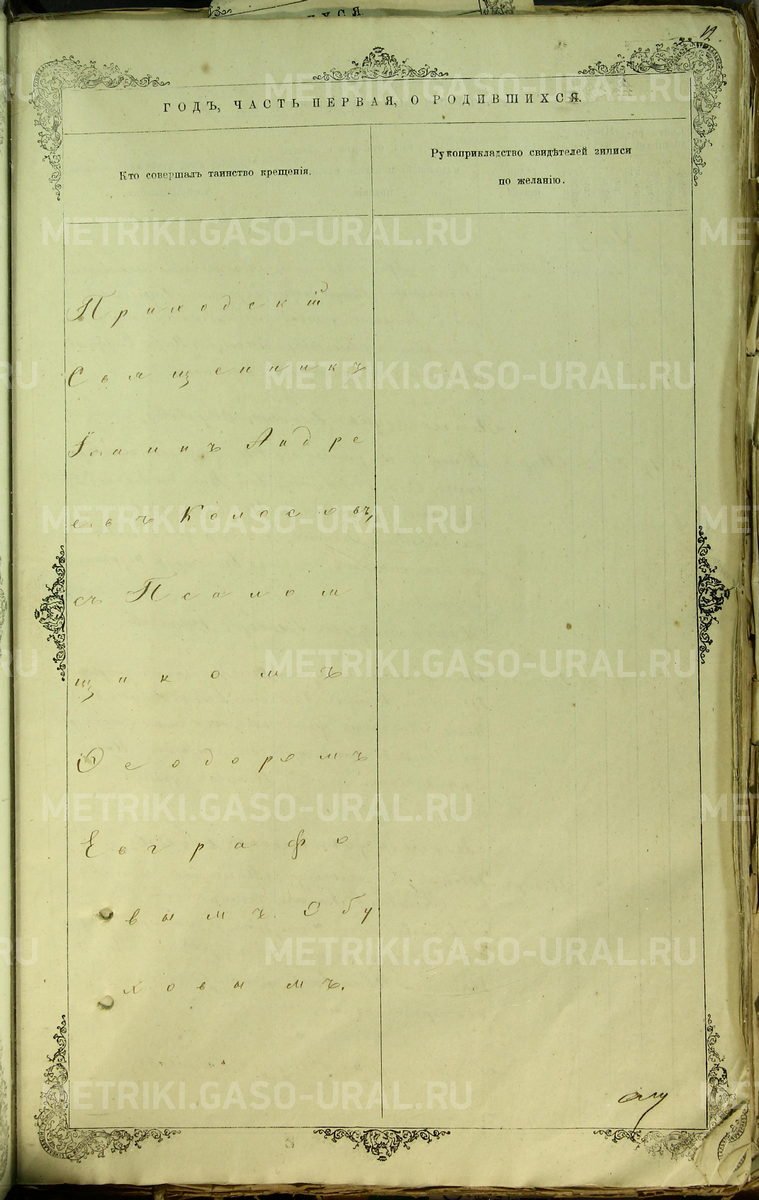 12
ГОДЪ, ЧАСТЬ ПЕРВАЯ, О РОДИВШИХСЯ.
Кто совершалъ таинство крещенія.
Рукоприкладство свидѣтелей записи
по желанію.
Приходскій
Священникъ
Іоаннъ Андре
евъ Колосовъ,
съ Псаломъ
щикомъ
Ѳеодоромъ
Евграфо
вымъ Обу
ховымъ.
METRIKI.GASO-URAL.RU